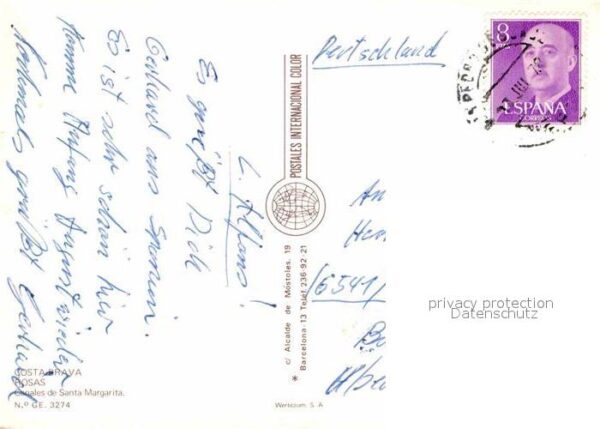 L. Alfons!
Es grüßt Dich
Gerhard aus Spanien.
Es ist sehr schön hier
Komme Anfang August wieder
Nochmals grüßt Gerhard
COSTA BRAVA
ROSAS
Canales de Santa Margarita.
N.º GE. 3274
POSTALES INTERNACIONAL COLOR
c/ Alcalde de Móstoles, 19
* Barcelona-13 Telef. 236-92-21
Wersozum, S. A
Deutschland
8
PTAS
ESPAÑA
CORREOS
An
Her
/6541/
privacy protection
Datenschutz